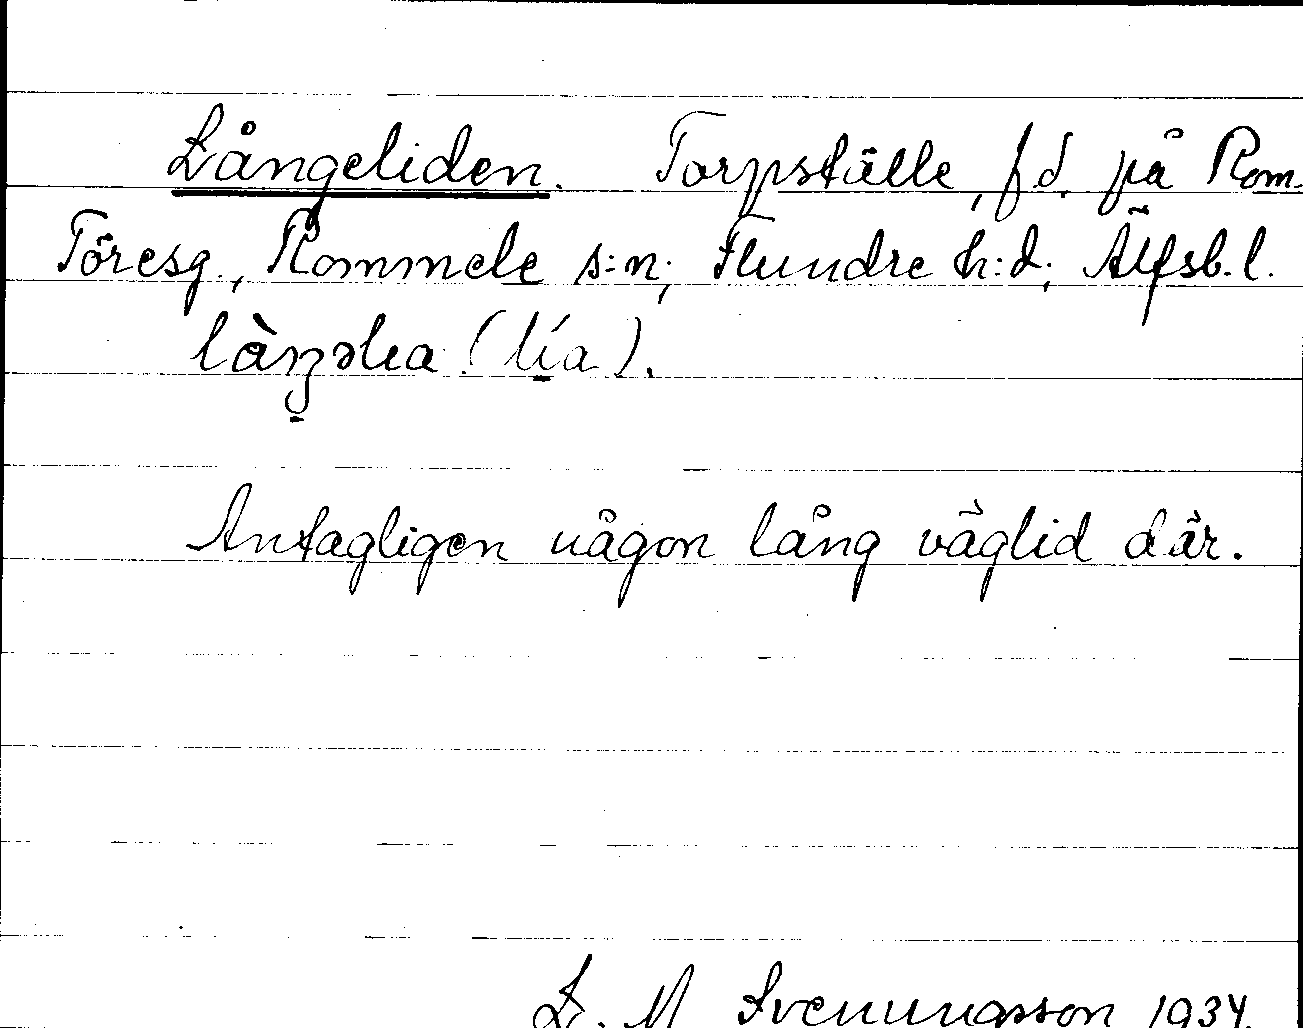 Långeliden. Torpställe, f.d. på Rom.
Töresg., Rommele s:n; Flundre h:d; Älfsb. l.
làŋəlıa (lía).
Antagligen någon lång väglid där.
L. M Svenungsson 1934.